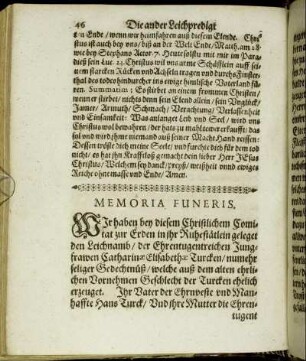 46 Die ander Leichpredigt
en Ende / wenn wir hinnfahren auß diesem Elende. Chri-
stus ist auch bey uns / biß an der Welt Ende / Matth. am 28
bey Stephans Actor. 7. Heute solstu mit mir im Para-
diß sein Luc. 23. Christus wil uns arme Schäfflein auff sei-
nem starcken Rücken und Achseln tragen und durchs Finster-
thal des todes hindurch in ins ewige himlische Vaterland füh-
ren. Summarum; Es stirbet an einem frommen Christen /
wenn er stirbet / nichts denn sein Elend allein / sein Unglück /
Jamer / Armuth / Schmach / Verachtung / Verlassenheit
und Einsamkeit: Was anlanget Leib und Seel / wird uns
Christus wol bewahren / der hats ja mahl tewer erkaufft / das
sol und wird ihme niemand auß seiner Macht Hand reissen:
Dessen tröste dich meine Seele / und fürchte dich für dem tod
nicht / es hat ihn Krafftloß gemacht dein lieber Herr JEsus
Christus / Welchem sey danck / preyß / weißheit unnd ewiges
Reich ohne masse und Ende / Amen.
MEMORIA FUNERIS.
WIr haben bey diesem Christlichem Comi-
tat zur Erden in ihr Ruhestätlein geleget
den Leichnamb / der Ehrentugentreichen Jung-
frawen Catharin-Elisabeth-Turcken / nunmehr
seliger Gedechtnüß / welche auß dem alten ehrli-
chen Vornehmen Geschlecht der Turcken ehelich
erzeuget. Ihr Vater der Ehrnveste und Man-
haffte Hans Turck / Und ihre Mutter die Ehren-
tugent